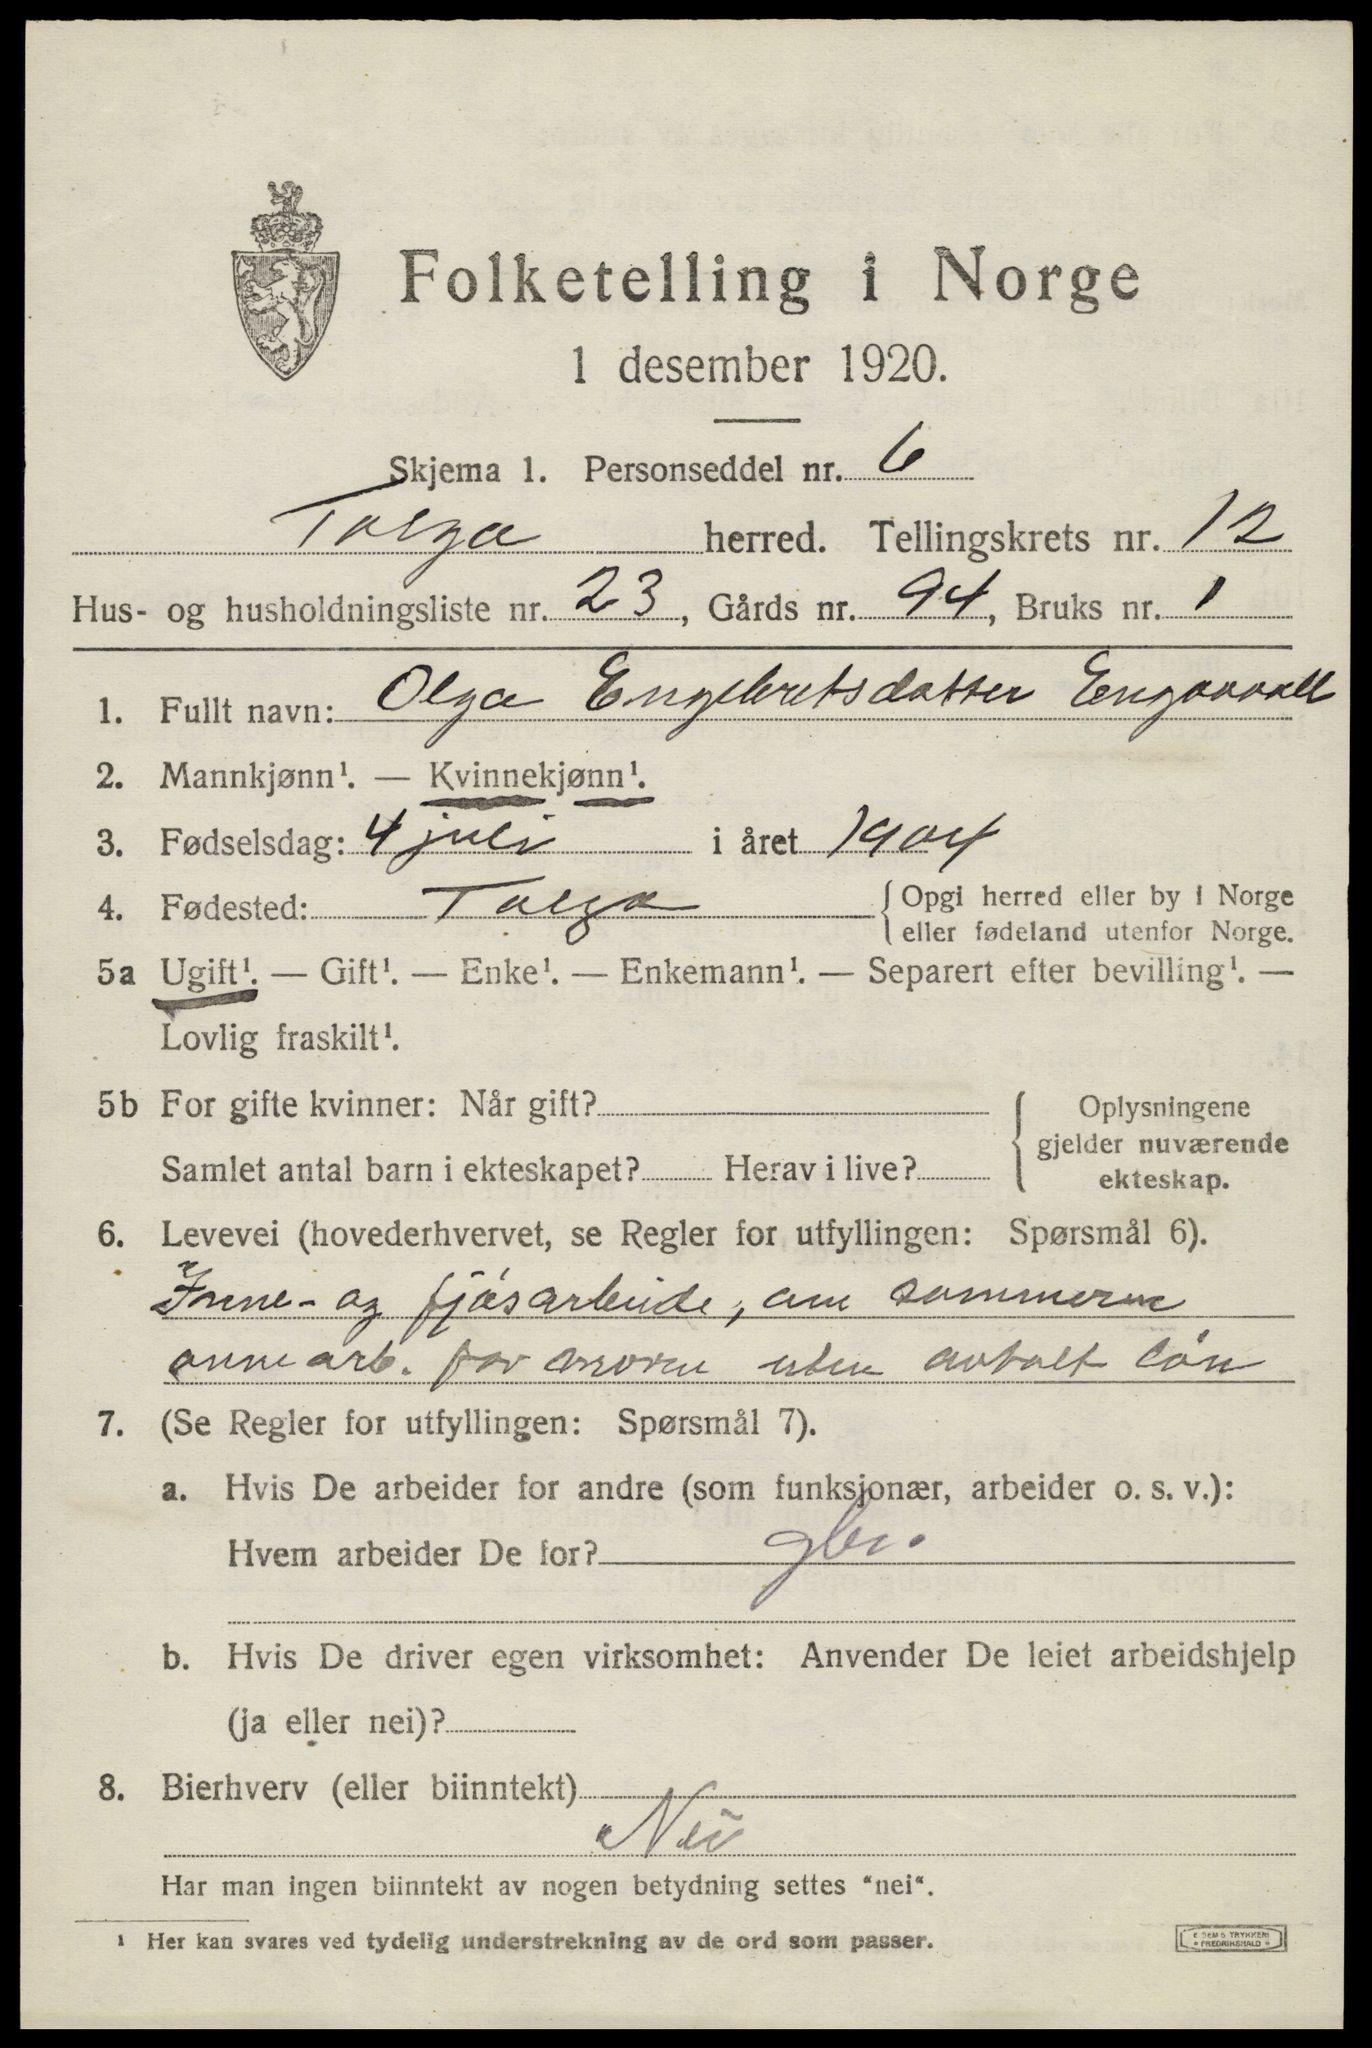 Folketelling i Norge
1 desember 1920.
Skjema 1. Personseddel nr. 6
Tolga herred. Tellingskrets nr. 12
Hus- og husholdningsliste nr. 23, Gårds nr. 94, Bruks nr. 1
1. Fullt navn: Olga Engebretsdatter
2. Mannkjønn¹. — Kvinnekjønn¹.
3. Fødselsdag: 4 juli i året 1904
4. Fødested: Tolga { Opgi herred eller by i Norge
eller fødeland utenfor Norge.
5a Ugift¹. — Gift¹. — Enke¹. — Enkemann¹. — Separert efter bevilling¹. —
Lovlig fraskilt¹.
5b For gifte kvinner: Når gift?
Samlet antal barn i ekteskapet? Herav i live?
{ Oplysningene
gjelder nuværende
ekteskap.
6. Levevei (hovederhvervet, se Regler for utfyllingen: Spørsmål 6).
Inne- og fjøsarbeide, om sommeren
onnearb. for moren uten avtalt løn
7. (Se Regler for utfyllingen: Spørsmål 7).
a. Hvis De arbeider for andre (som funksjonær, arbeider o. s. v.):
Hvem arbeider De for? gbr.
b. Hvis De driver egen virksomhet: Anvender De leiet arbeidshjelp
(ja eller nei)?
8. Bierhverv (eller biinntekt)
Nei
Har man ingen biinntekt av nogen betydning settes "nei".
¹ Her kan svares ved tydelig understrekning av de ord som passer.